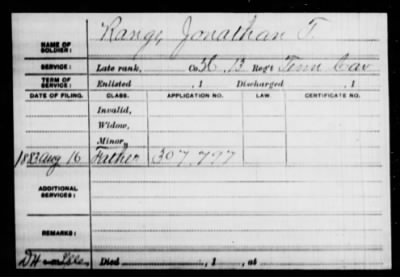 Range, Jonathan T.
NAME OF SOLDIER:
SERVICE: Late rank, Co. H, 13 Reg't Tenn Cav
TERM OF SERVICE: Enlisted , 1 Discharged , 1
DATE OF FILING. CLASS. APPLICATION NO. LAW. CERTIFICATE NO.
Invalid,
Widow,
Minor,
1883 Aug 16 Father 307,797
ADDITIONAL SERVICES:
REMARKS:
Died , 1 , at